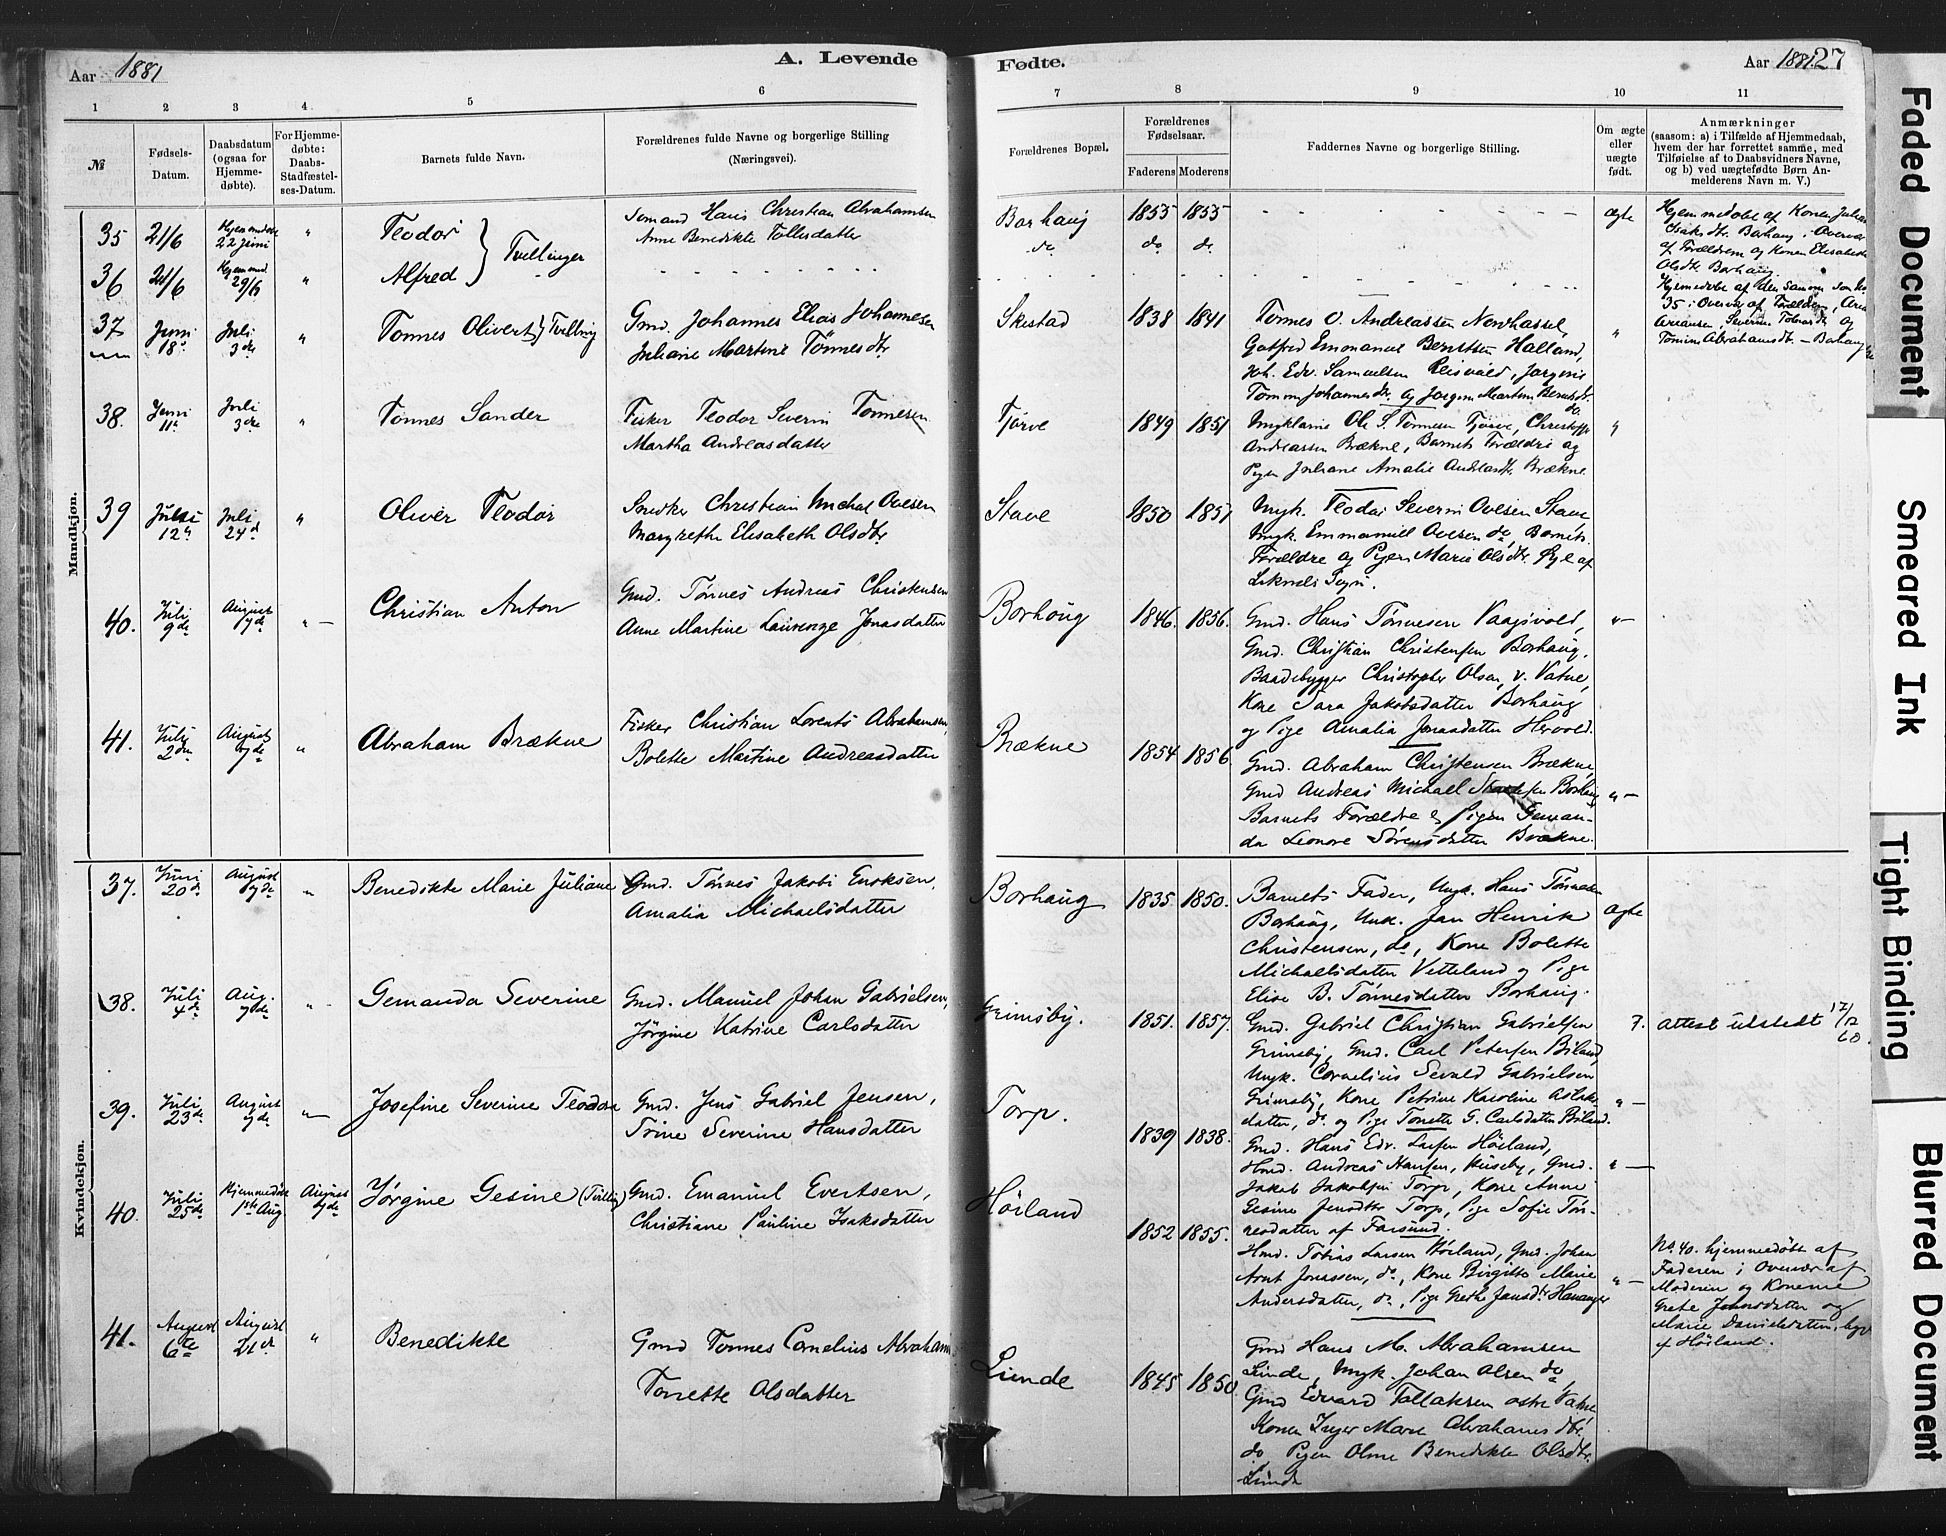 Aar 1881
A. Levende
Fødte.
Aar 1881. 27
1 2 3 4 5 6 7 8 9 10 11
№
Fødsels-
Datum.
Daabsdatum
(ogsaa for
Hjemme-
døbte).
For Hjemme-
døbte:
Daabs-
Stadfæstel-
ses-Datum.
Barnets fulde Navn.
Forældrenes fulde Navne og borgerlige Stilling
(Næringsvei).
Forældrenes Bopæl.
Forældrenes
Fødselsaar.
Faderens Moderens
Faddernes Navne og borgerlige Stilling.
Om ægte
eller
uægte
født.
Anmærkninger
(saasom: a) i Tilfælde af Hjemmedaab,
hvem der har forrettet samme, med
Tilføielse af to Daabsvidners Navne,
og b) ved uægtefødte Børn An-
melderens Navn m. V.)
Mandkjøn.
35 21/6 Hjemmedøbt 22 Juni " Teodor } Tvillinger
Sømand Hans Christian Abrahamsen
Anne Benedikte Tollisdatter
Borhaug 1855 1855 ægte
do do do
Hjemmedøbt af Konen Juliane
Isaksdtr. Borhaug i Overvær
af Forældrene og Konen Elisabeth
Olsdtr Borhaug.
36 21/6 Hjemmed 29/6 " Alfred
Hjemmedøbt af den samme som No
35 i Overvær af Forældrene,
Tomine Abrahamsdtr. - Borhaug
37 Juni 18. Juli 3die " Tonnes Olivert } Tvilling
Gmd. Johannes Elias Johannesen
Juliane Martine Tønnesdtr
Skestad 1838 1841 "
Tonnes O. Andreassen Nordhassel,
Gotfred Emmanuel Berntsen Halland,
Joh. Edv. Samuelsen Reisvold, Jørgine
Tomine Johannesdtr. og Jørgine Martine Berntsdtr.
do
38. Juni 11te Juli 3die " Tonnes Sander
Fisker Teodor Severin Tonnesen
Martha Andreasdatter
Tjørve 1849 1851 "
Ungkarle Ole S. Tonnesen Tjørve, Christoffer
Andreassen Brækne, Barnets Forældre og
Pigen Juliane Amalie Andreasdtr. Brækne
39 Juli 12te Juli 24d " Oliver Teodor
Snedker Christian Michal Ovesen
Margrethe Elisabeth Olsdtr
Stave 1850 1851
Ungk. Teodor Severin Ovesen Stave
Ungk. Emmanuell Ovesen do, Barnets
Forældre og Pigen Marie Olsdtr. Øye af
Liknes Sogn.
40. Juli 9de August 7de " - Christian Anton
Gmd. Tønnes Andreas Christensen
Anne Martine Laurenze Jonasdatter
Borhoug 1846. 1856. " -
Gmd. Hans Tønnesen Vaagsvold,
Gmd. Christian Christensen Borhaug,
Baadebygger Christopher Olsen, v. Vatne,
Kone Sara Jakobsdatter Borhaug
og Pige Amalia Jonasdatter Hervold.
41. Juli 2den August 7de " Abraham Brækne
Fisker Christian Lorents Abrahamsen,
Bolette Martine Andreasdatter
Brækne 1854 1856 " -
Gmd. Abraham Christensen Brækne,
Gmd Andreas Michael Borhaug
Barnets Forældre & Pigen Geman-
da Leonore Sørensdatter Brækne.
Kvindekjøn.
37. Juni 20de August 7de " Benedikte Marie Juliane
Gmd. Tønnes Jakobi Enoksen,
Amalia Michaelsdatter
Borhaug 1835 1850. Ægte
Barnets Fader, Ungk. Hans Tønnesen
Borhaug, Unk. Jan Henrik
Christensen, do, Kone Bolette
Michaelsdatter Vetteland og Pige
Elise B. Tønnesdatter Borhaug.
38. Juli 4de Aug. 7de " Gemanda Severine
Gmd. Manuel Johan Gabrielsen,
Jørgine Katrine Carlsdatter
Grimsby. 1851. 1857.
Gmd. Gabriel Christian Gabrielsen
Grimsby, Gmd. Carl Petersen Biland,
Ungk. Cornelius Sevald Gabrielsen
Grimsby, Kone Petrine Karoline Aslak-
datter, do og Pige Tonette G. Carlsdatter Biland.
Attest udstedt 17/12 60.
39. Juli 23de August 7de " - Josefine Severine Teodora
Gmd. Jens Gabriel Jensen,
Trine Severine Hansdatter
Torp. 1839 1838. " -
Gmd. Hans Edv. Larsen Høiland,
Hmd. Andreas Hansen, Huseby, Gmd.
Jakob Jakobsen Torp, Kone Anne
Gesine Jensdtter Torp, Pige Sofie Tøn-
nesdatter af Farsund.
40. Juli 25de Hjemmedøbt 1ste Aug. August 7de Jørgine Gesine (Tvilling)
Gmd. Emanuel Evertsen,
Christiane Pauline Isaksdatter
Høiland 1852 1855. " -
Hmd. Tobias Larsen Høiland, Gmd. Johan
Arnt Jonassen, do, Kone Birgitte Marie
Andersdatter, do, Pige Grethe Jansdtr Hananger
No. 40. hjemmedøbt af
Faderen i Overvær af
Moderen og Konerne
Grete Johnsdatter og
Marie Danielsdatter, begge
af Høiland.
41. August 6te August 21de " Benedikte
Gmd Tonnes Cornelius Abraham
Tonette Olsdatter
Lunde 1845 1850
Gmd Hans M. Abrahamsen
Lunde, Ungk. Johan Olsen do,
Gmd Edvard Tallaksen østre Vatne
Konen Inger Marie Abrahamsdtr.
do Pigen Oline Benedikte Olsdtr.
Lunde
Faded Document
Smeared Ink
Tight Binding
Blurred Document